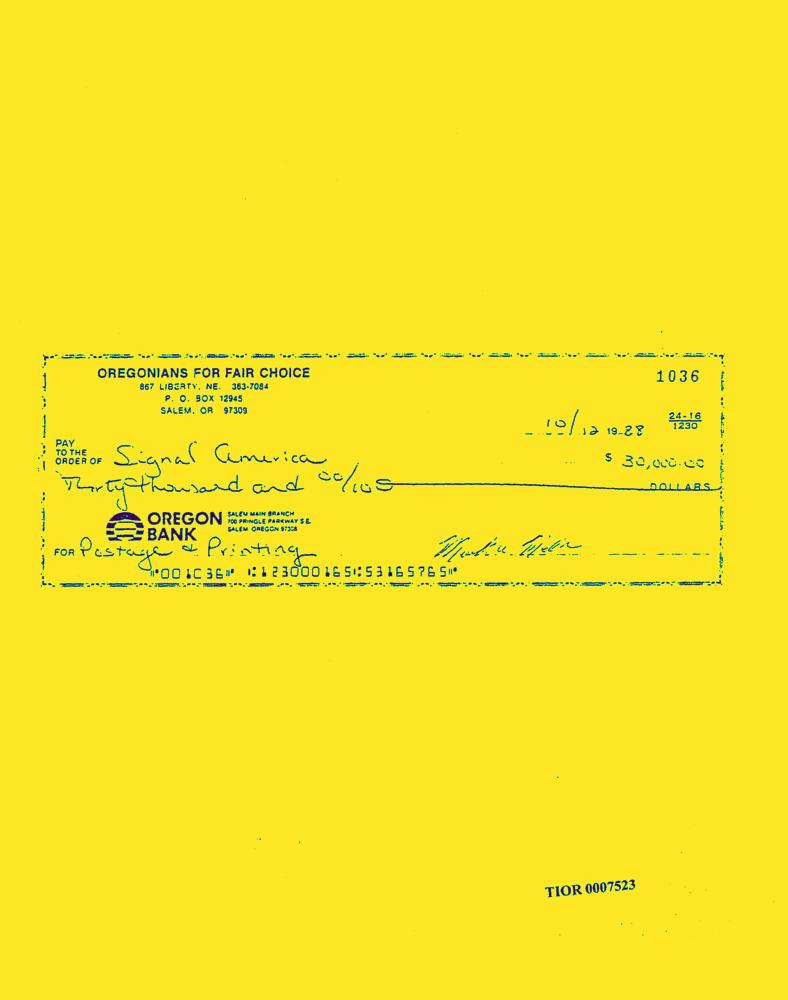 OREGONIANS FOR FAIR CHOICE
867 LIBERTY, NE. 363-7084
P. O. BOX 12945
SALEM, OR 97309
1036
24-16
1230
10/12 19 88
PAY
TO THE
ORDER OF Signal America
$ 30,000.00
Thirty thousand and 00/100 DOLLARS
OREGON
BANK
SALEM MAIN BRANCH
700 PRINGLE PARKWAY S E
SALEM OREGON 97308
FOR Postage & Printing
⑈001036⑈ ⑆123000165⑆53165765⑈
TIOR 0007523